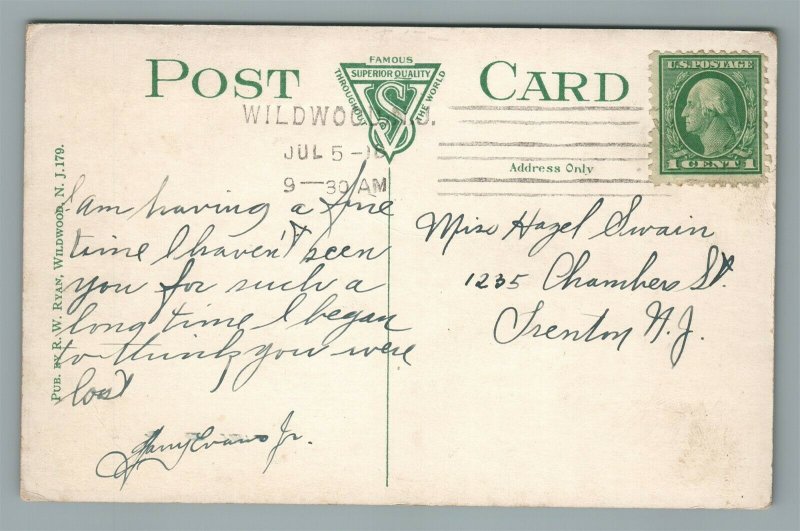 POST CARD
FAMOUS
SUPERIOR QUALITY
THROUGHOUT
THE WORLD
VS
U.S. POSTAGE
1 CENT 1
WILDWOOD, N.J.
JUL 5 - 16
9 — 30 AM
Address Only
PUB. BY R. W. RYAN, WILDWOOD, N. J. 179.
I am having a fine
time I haven't seen
you for such a
long time I began
to think you were
lost
Harry Evans Jr.
Miss Hazel Swain
1235 Chambers St.
Trenton N.J.